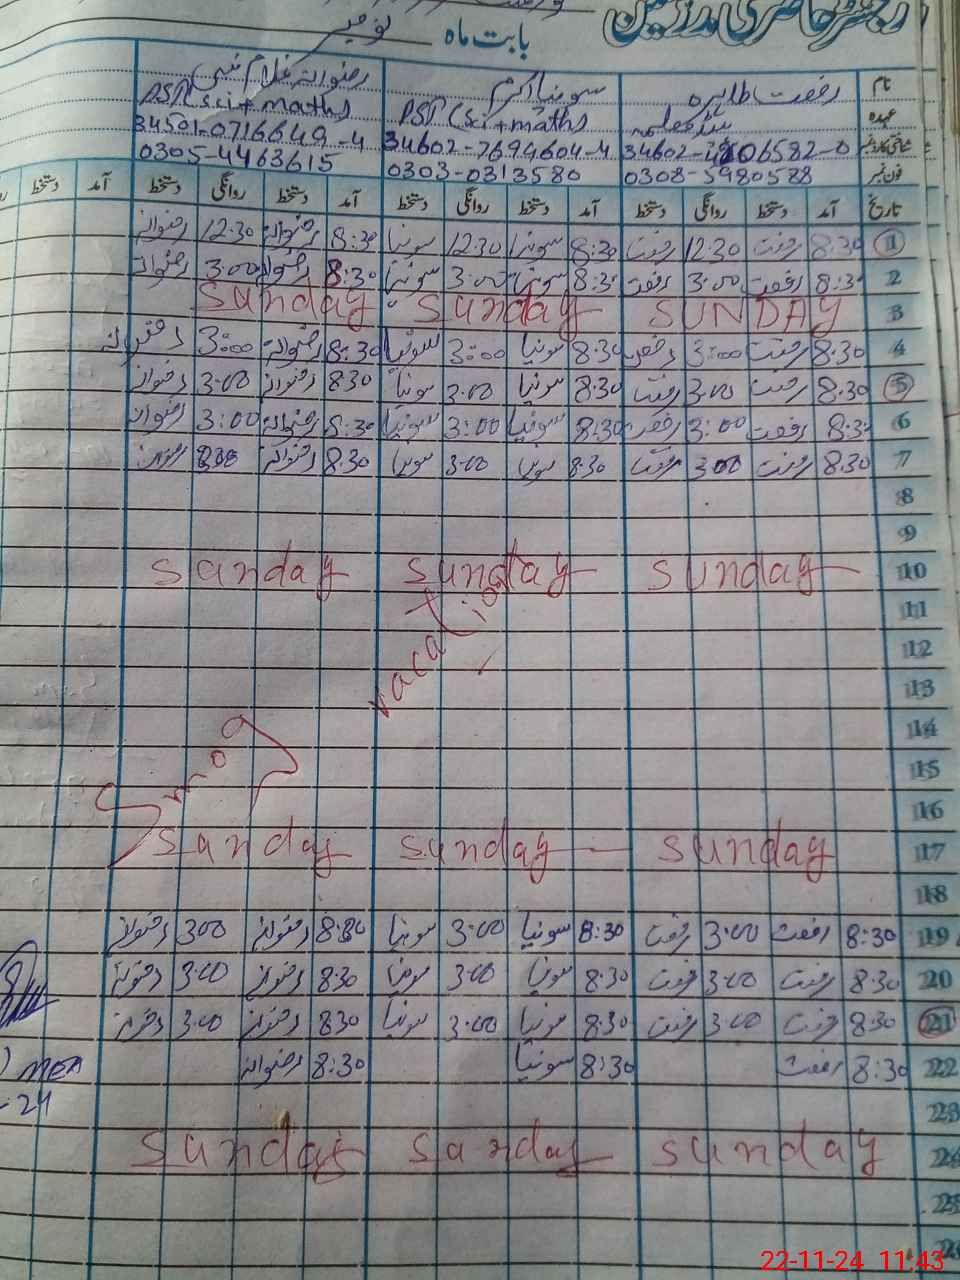 رجسٹر حاضری مدرسین
بابت ماہ نومبر
نام رفعت طاہرہ سونیا اکرم رضوانہ غلام نبی
عہدہ ہیڈ معلمہ PST (sci+math) PST (sci+math)
شناختی کارڈ نمبر 34602-7694604-4 34501-0716649-4
فون نمبر 0308-5980588 0303-0313580 0305-4463615
تاریخ آمد دستخط روانگی دستخط آمد دستخط روانگی دستخط آمد دستخط روانگی دستخط آمد دستخط
1 8:30 رفعت 12:30 رفعت 8:30 سونیا 12:30 سونیا 8:30 رضوانہ 12:30 رضوانہ
2 8:30 رفعت 3:00 رفعت 8:30 سونیا 3:00 سونیا 8:30 رضوانہ 3:00 رضوانہ
3 SUNDAY Sunday Sunday
4 8:30 رفعت 3:00 رفعت 8:30 سونیا 3:00 سونیا 8:30 رضوانہ 3:00 رضوانہ
5 8:30 رفعت 3:00 رفعت 8:30 سونیا 3:00 سونیا 830 رضوانہ 3:00 رضوانہ
6 8:30 رفعت 3:00 رفعت 8:30 سونیا 3:00 سونیا 8:30 رضوانہ 3:00 رضوانہ
7 8:30 رفعت 3:00 رفعت 8:30 سونیا 3:00 سونیا 8:30 رضوانہ رضوانہ
8
9
10 Sunday Sunday Sanday
11
12
13
14
Smog vacation
15
16
17 Sunday Sunday Sanday
18
19 8:30 رفعت 3:00 رفعت 8:30 سونیا 3:00 سونیا 8:30 رضوانہ 300 رضوانہ
20 8:30 رفعت 3:00 رفعت 8:30 سونیا 3:00 سونیا 8:30 رضوانہ 3:00 رضوانہ
21 8:30 رفعت 3:00 رفعت 8:30 سونیا 3:00 سونیا 830 رضوانہ 3:00 رضوانہ
22 8:30 رفعت 8:30 سونیا 8:30 رضوانہ
MEA
-24
23
24 Sunday Sanday Sunday
25
26
22-11-24 11:43